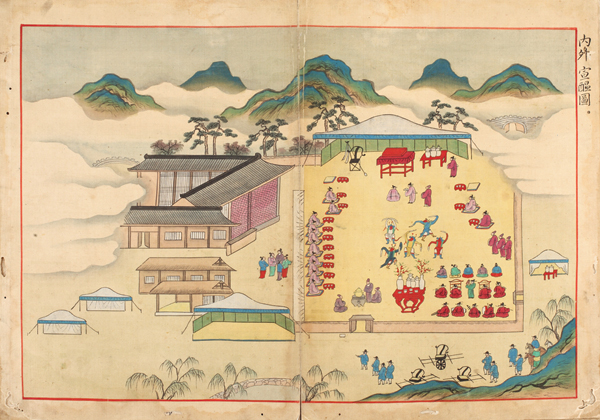 內外 宣醞圖。